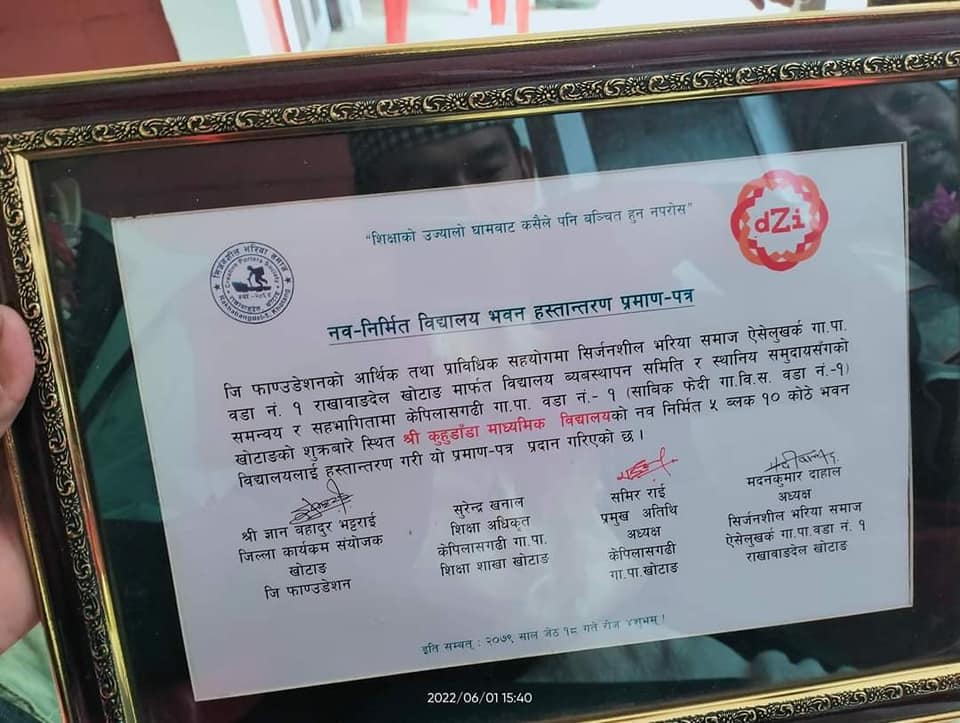 “शिक्षाको उज्यालो घामबाट कसैले पनि वञ्चित हुन नपरोस”
dZi
सिर्जनशील भरिया समाज
Creative Porters Society
नव-निर्मित विद्यालय भवन हस्तान्तरण प्रमाण-पत्र
जि फाण्उडेशनको आर्थिक तथा प्राविधिक सहयोगमा सिर्जनशील भरिया समाज ऐसेलुखर्क गा.पा.
वडा नं. १ राखावाङदेल खोटाङ मार्फत विद्यालय ब्यबस्थापन समिति र स्थानिय समुदायसँगको
समन्वय र सहभागितामा केपिलासगढी गा.पा. वडा नं.- १ (साविक फेदी गा.वि.स. वडा नं.-१)
खोटाङको शुक्रबारे स्थित श्री कुहुडाँडा माध्यमिक विद्यालयको नव निर्मित ५ ब्लक १० कोठे भवन
विद्यालयलाई हस्तान्तरण गरी यो प्रमाण-पत्र प्रदान गरिएको छ ।
श्री ज्ञान बहादुर भट्टराई
जिल्ला कार्यकम संयोजक
खोटाङ
जि फाण्उडेशन
सुरेन्द्र खनाल
शिक्षा अधिकृत
केपिलासगढी गा.पा.
शिक्षा शाखा खोटाङ
समिर राई
प्रमुख अतिथि
अध्यक्ष
केपिलासगढी
गा.पा.खोटाङ
मदनकुमार दाहाल
अध्यक्ष
सिर्जनशील भरिया समाज
ऐसेलुखर्क गा.पा.वडा नं. १
राखावाङदेल खोटाङ
इति सम्बत् : २०७९ साल जेठ १८ गते रोज ४शुभम् !
2022/06/01 15:40